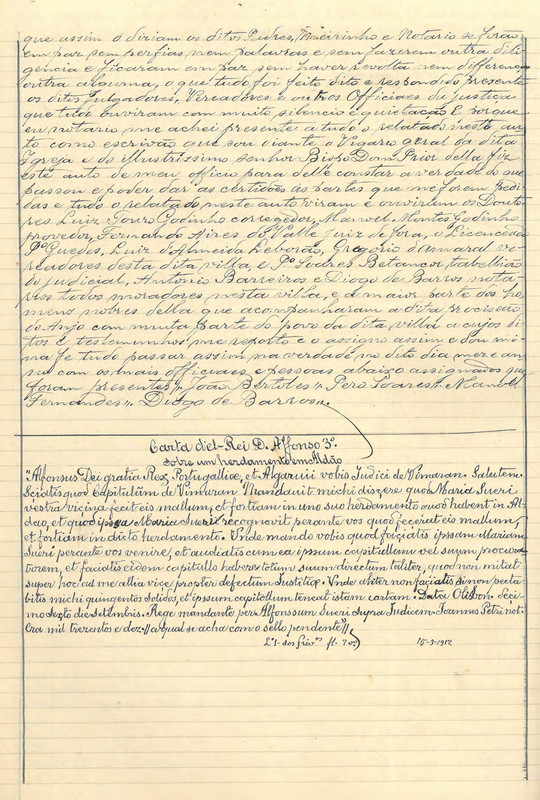 que assim o diriam os ditos Padres, Meirinho e Notario se foram
em paz sem perfias, nem palavras e sem fazerem outra dili-
gencia e ficaram em paz sem haver revolta nem differença
outra alguma, o que tudo foi feito dito e respondido presente
os ditos Julgadores, Vereadores e outros Officiaes da justiça
que tudo ouviram com muito silencio e quietação E porque
eu notario me achei presente a tudo o relatado neste au-
to como escrivão que sou diante o Vigario geral da dita
Igreja e do illustrissimo senhor Bispo Dom Prior della fiz
este auto de meu officio para delle constar a verdade do que
passou e poder dar as certidões ás partes que me forem pedi-
das e tudo o relatado neste auto viram e ouviram os Douto-
res Luiz Godinho corregedor, Manoel Godinho
provedor, Fernando Aires do Valle juiz de fora, o Licenceado
Pº Guedes, Luiz d'Almeida Leborão, Gregorio d'Amaral ve-
readores desta dita villa e Pº Soares Betancor tabellião
do judicial, Antonio Barreiros e Diogo de Barros nota-
rios todos moradores nesta villa, e a maior parte dos ho-
mens nobres della que acompanharam a dita procissão
do Anjo com muita parte do povo da dita villa a cujos di-
tos e testemunhos me reporto e o assigno assim e dou mi-
nha fé tudo passar assim na verdade no dito dia mez e an-
no com os mais officiaes e pessoas abaixo assignados que
foram presentes,, João Bertoles,, Pero Soares,, Manoel
Fernandes,, Diogo de Barros,,
Carta d'el-Rei D. Affonso 3º
sobre um herdamento em Aldão
"Alfonsus Dei gratia Rex Portugalliæ, et Algarvii vobis Judici de Vimaran. Salutem
Sciatis quod Capitulum de Vimaran Mandauit michi dizere quod Maria Sueri
vestra vicina fecit eis mallum, et fortiam in uno suo herdamento quod habent in Al-
dao, et quod ipsa Maria Sueri recognovit perante vos quod fecerat eis mallum,
et fortiam in dicto herdamento. Unde mando vobis quod faciatis ipsam Mariam
Sueri perante vos venire, et audiatis cum ea ipsum capitullum vel suum procura-
torem, et faciatis eidem capitullo habere totum suum directum taliter, quod non mitat
super hoc ad me allia vice propter defectum Justitiæ. Unde aliter non faciatis sinon pecta-
bitis michi quingentos solidos, et ipsum capitullum teneat istam cartam. Data Olisbon. Deci-
mo sexto die Setmbris. Rege mandante per Alfonssum Sueri Judicem. Joannus Petri not.
Era mil trezentos e doz // a qual se acha com o sello pendente"//
Lº 1. dos priv.os fl. 7 vº)
15-3-1912